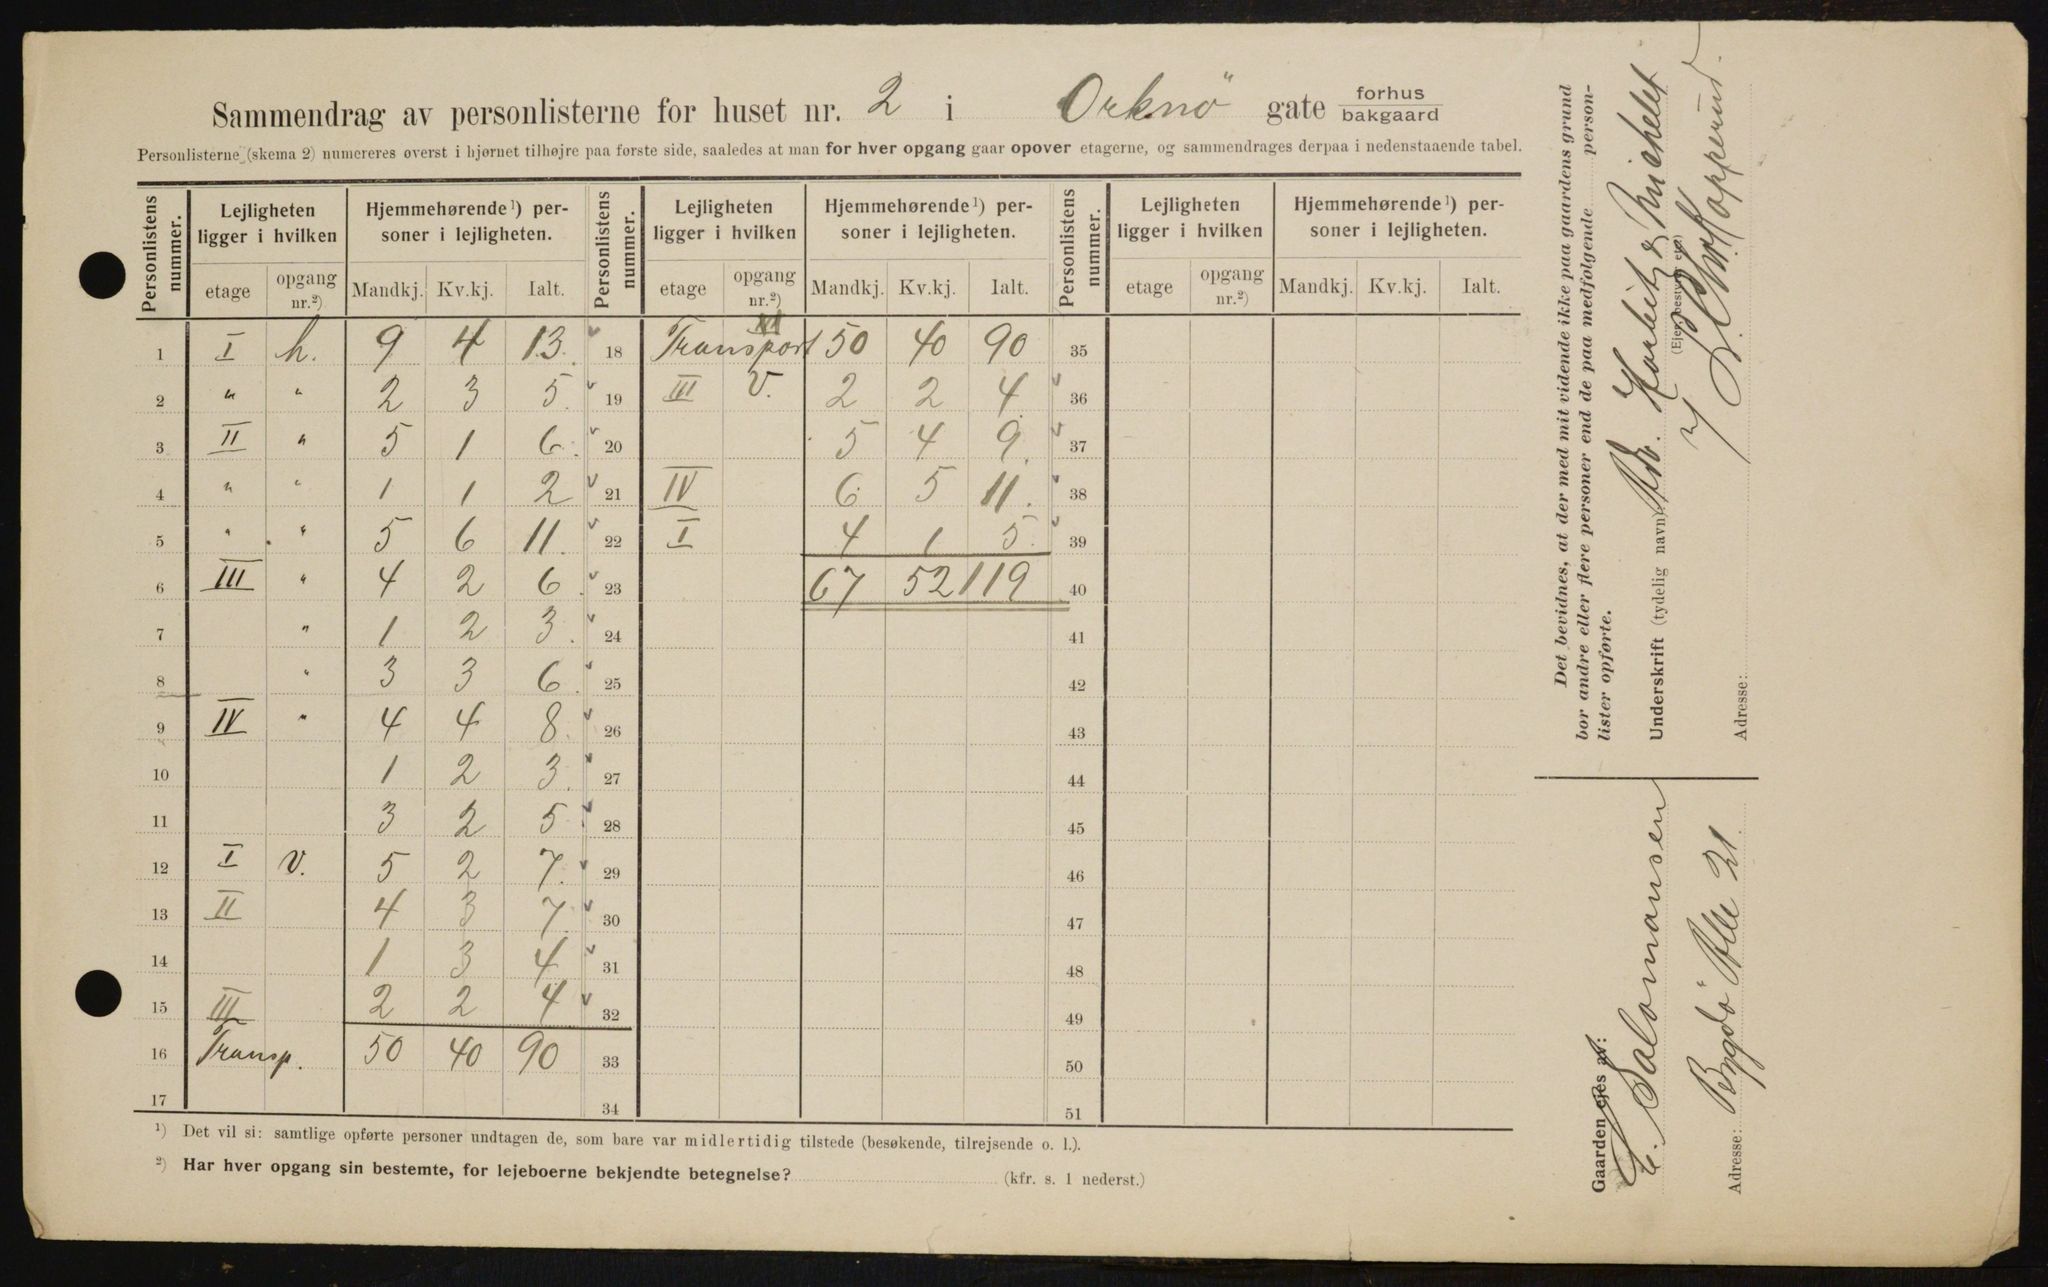 Sammendrag av personlisterne for huset nr. 2 i Orknö gate forhus bakgaard
Personlisterne (skema 2) numereres øverst i hjørnet tilhøjre paa første side, saaledes at man for hver opgang gaar opover etagerne, og sammendrages derpaa i nedenstaaende tabel.
Personlistens nummer. Lejligheten ligger i hvilken Hjemmehørende¹) personer i lejligheten. Personlistens nummer. Lejligheten ligger i hvilken Hjemmehørende¹) personer i lejligheten. Personlistens nummer. Lejligheten ligger i hvilken Hjemmehørende¹) personer i lejligheten.
etage opgang nr.²) Mandkj. Kv.kj. Ialt. etage opgang nr.²) Mandkj. Kv.kj. Ialt. etage opgang nr.²) Mandkj. Kv.kj. Ialt.
1 I h. 9 4 13. 18 Transport 50 40 90 35
2 " " 2 3 5. 19 III V. 2 2 4. 36
3 II " 5 1 6. 20 5 4 9. 37
4 " " 1 1 2 21 IV 6 5 11. 38
5 " " 5 6 11. 22 I 4 1 5. 39
6 III " 4 2 6. 23 67 52 119 40
7 " 1 2 3. 24 41
8 " 3 3 6. 25 42
9 IV " 4 4 8. 26 43
10 1 2 3. 27 44
11 3 2 5 28 45
12 I V. 5 2 7. 29 46
13 II 4 3 7. 30 47
14 1 3 4 31 48
15 III 2 2 4 32 49
16 Transp. 50 40 90 33 50
17 34 51
¹) Det vil si: samtlige opførte personer undtagen de, som bare var midlertidig tilstede (besøkende, tilrejsende o. l.).
²) Har hver opgang sin bestemte, for lejeboerne bekjendte betegnelse? (kfr. s. 1 nederst.)
Det bevidnes, at der med mit vidende ikke paa gaardens grund
bor andre eller flere personer end de paa medfølgende personlister opførte.
Underskrift (tydelig navn) Horbitz & Michelet
(Ejer, bestyrer etc.)
Adresse:
Gaarden ejes av:
C. Salomansen
Adresse: Bygdö Alle 21